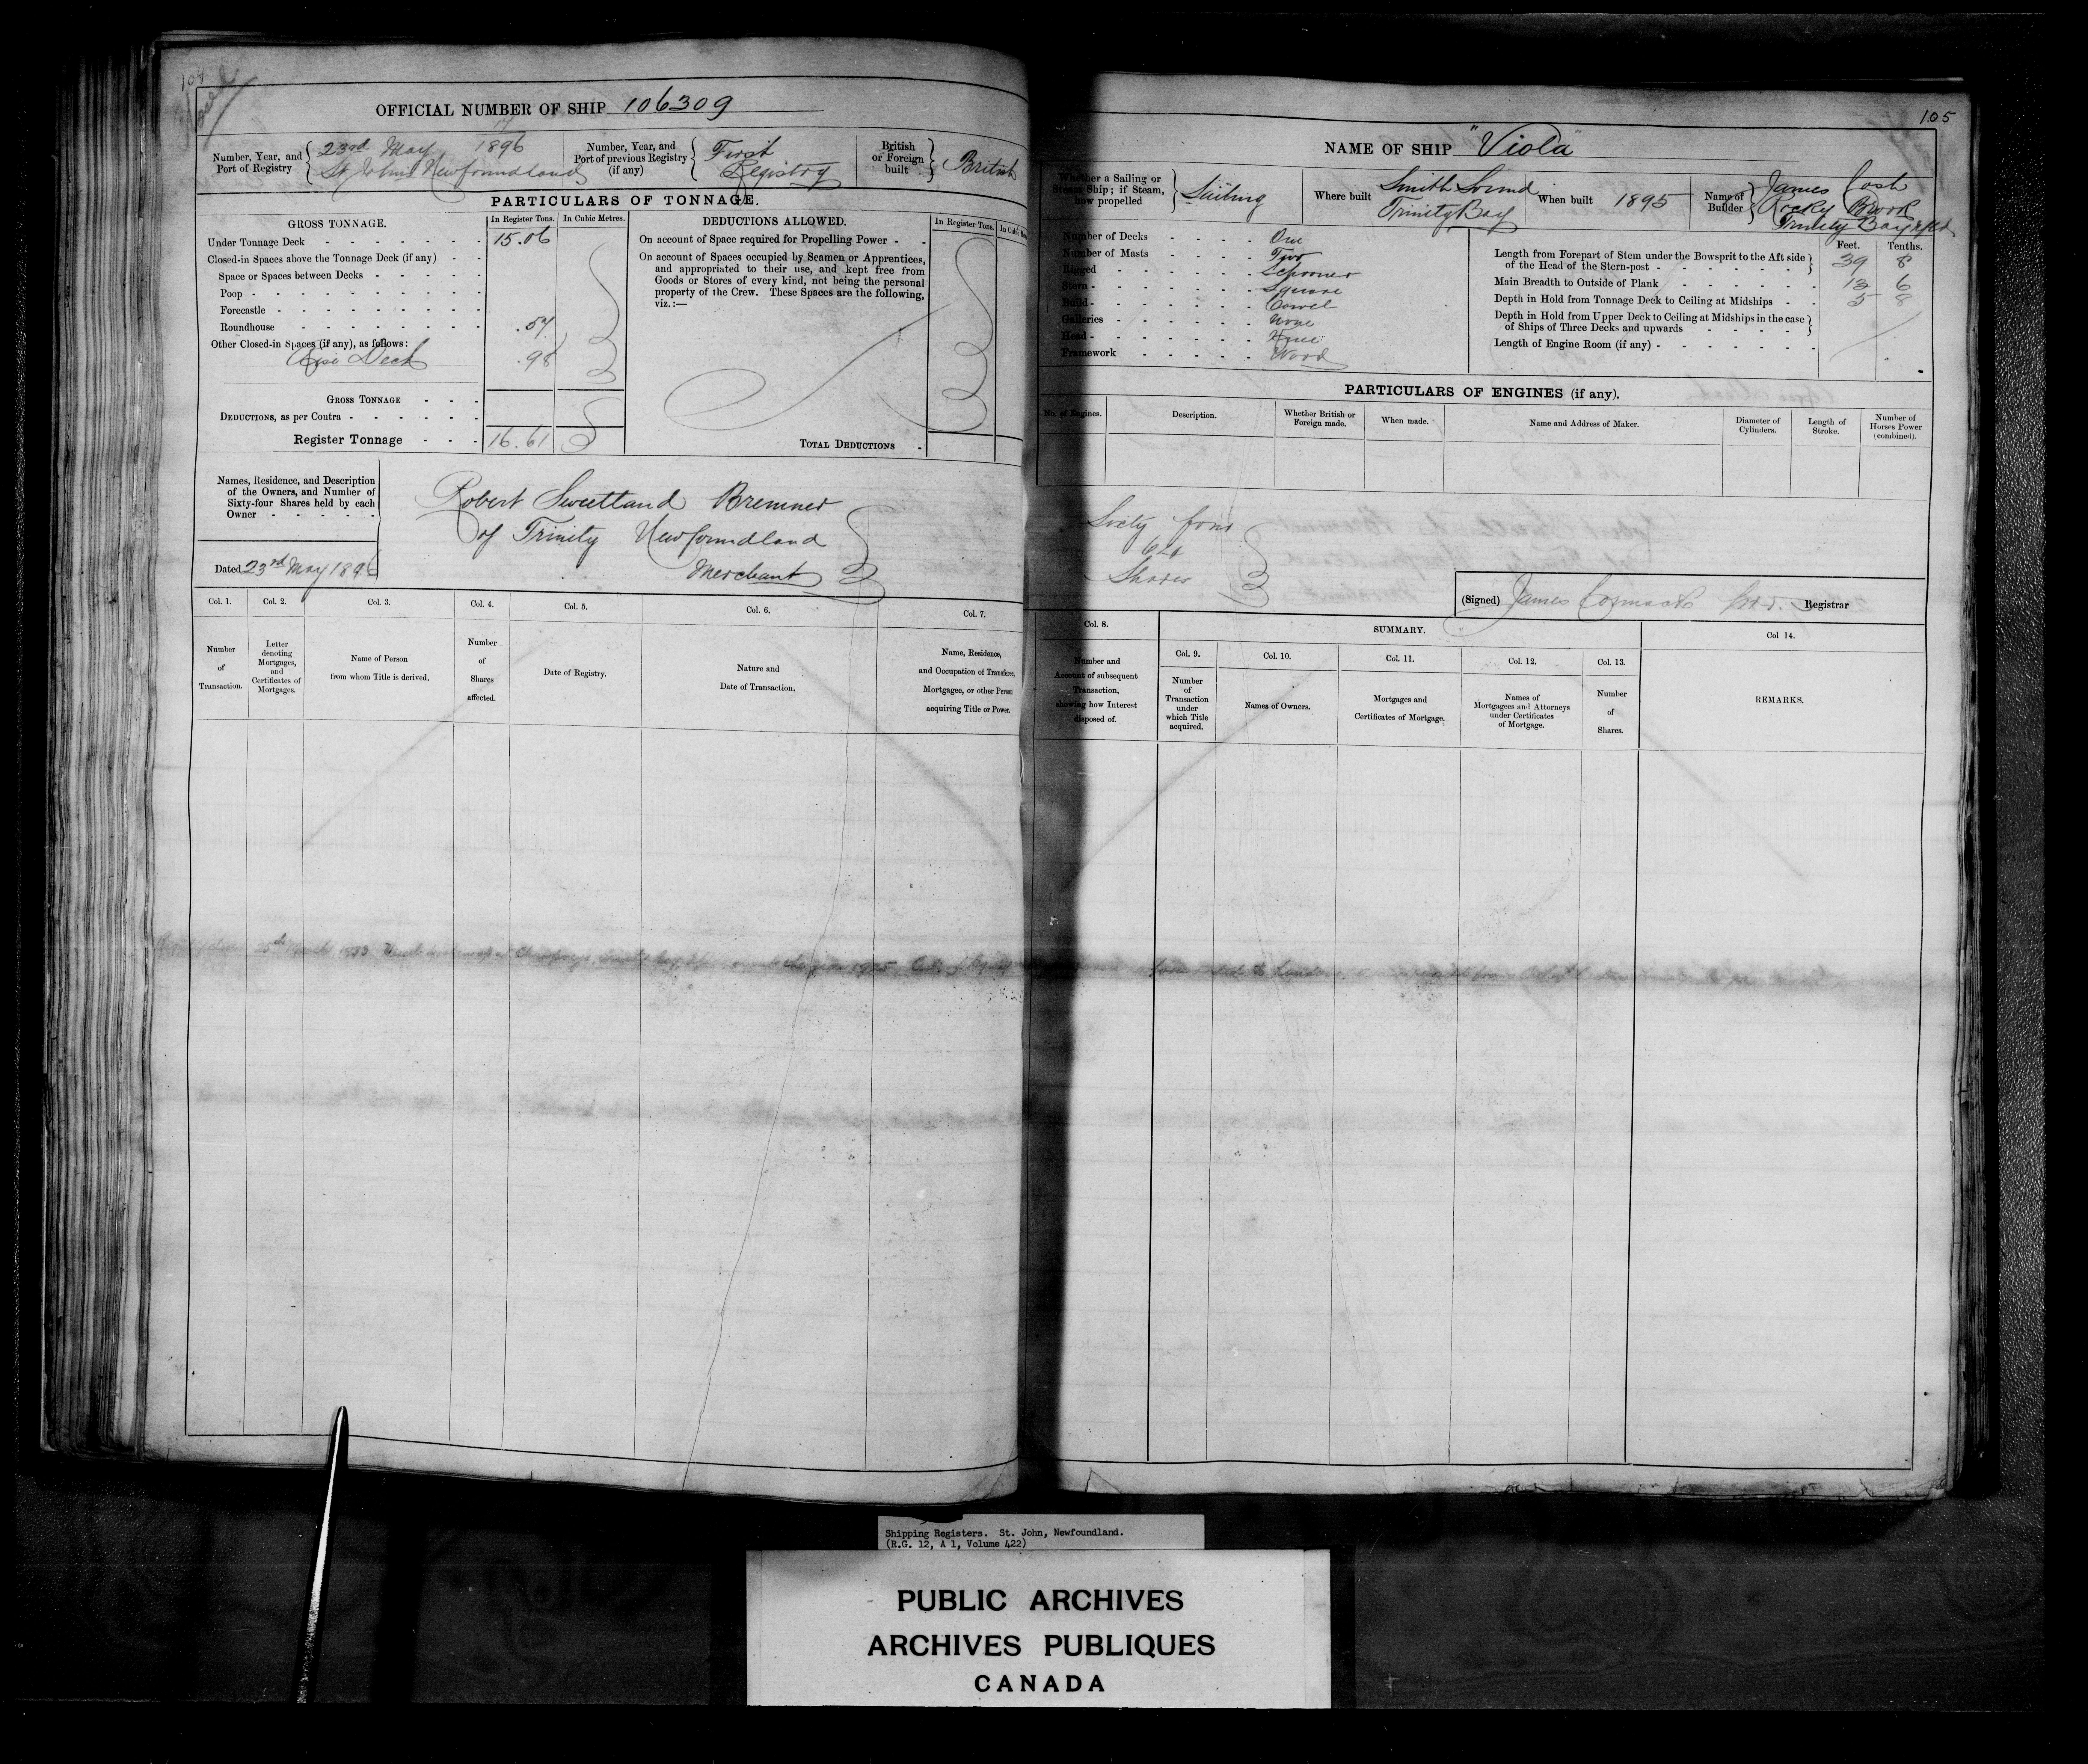 104
OFFICIAL NUMBER OF SHIP 106309
Number, Year, and Port of Registry
23rd May 1896
St Johns Newfoundland
Number, Year, and Port of previous Registry (if any)
First Registry
British or Foreign built
British
PARTICULARS OF TONNAGE.
GROSS TONNAGE.
In Register Tons. In Cubic Metres.
Under Tonnage Deck 15.06
Closed-in Spaces above the Tonnage Deck (if any)
Space or Spaces between Decks
Poop
Forecastle
Roundhouse .57
Other Closed-in Spaces (if any), as follows:
Rise Deck .98
GROSS TONNAGE
DEDUCTIONS, as per Contra
Register Tonnage 16.61
DEDUCTIONS ALLOWED.
In Register Tons.
On account of Space required for Propelling Power
On account of Spaces occupied by Seamen or Apprentices,
and appropriated to their use, and kept free from
Goods or Stores of every kind, not being the personal
property of the Crew. These Spaces are the following,
viz.:—
TOTAL DEDUCTIONS
Names, Residence, and Description
of the Owners, and Number of
Sixty-four Shares held by each
Owner
Dated 23rd May 1896
Robert Sweetland Bremner
of Trinity Newfoundland
Merchant
Col. 1. Col. 2. Col. 3. Col. 4. Col. 5. Col. 6. Col. 7.
Number of Transaction.
Letter denoting Mortgages, and Certificates of Mortgages.
Name of Person from whom Title is derived.
Number of Shares affected.
Date of Registry.
Nature and Date of Transaction.
Name, Residence, and Occupation of Transferee, Mortgagee, or other Person acquiring Title or Power.
25th 1933
105
NAME OF SHIP "Viola"
Whether a Sailing or Steam Ship; if Steam, how propelled
Sailing
Where built
Smith Sound
Trinity Bay
When built 1895
Name of Builder
James Cosh
Rocky Brook
Trinity Bay Nfld
Number of Decks One
Number of Masts Two
Rigged Schooner
Stern Square
Build Carvel
Galleries None
Head
Framework Wood
Feet. Tenths.
Length from Forepart of Stem under the Bowsprit to the Aft side
of the Head of the Stern-post 39 8
Main Breadth to Outside of Plank 13 6
Depth in Hold from Tonnage Deck to Ceiling at Midships 5 8
Depth in Hold from Upper Deck to Ceiling at Midships in the case
of Ships of Three Decks and upwards
Length of Engine Room (if any)
PARTICULARS OF ENGINES (if any).
No. of Engines.
Description.
Whether British or Foreign made.
When made.
Name and Address of Maker.
Diameter of Cylinders.
Length of Stroke.
Number of Horses Power (combined).
Sixty four
64
Shares
(Signed) James Cormack Registrar
Col. 8.
SUMMARY.
Col 14.
Col. 9. Col. 10. Col. 11. Col. 12. Col. 13.
Number and Account of subsequent Transaction, showing how Interest disposed of.
Number of Transaction under which Title acquired.
Names of Owners.
Mortgages and Certificates of Mortgage.
Names of Mortgagees and Attorneys under Certificates of Mortgage.
Number of Shares.
REMARKS.
Shipping Registers. St. John, Newfoundland.
(R.G. 12, A 1, Volume 422)
PUBLIC ARCHIVES
ARCHIVES PUBLIQUES
CANADA